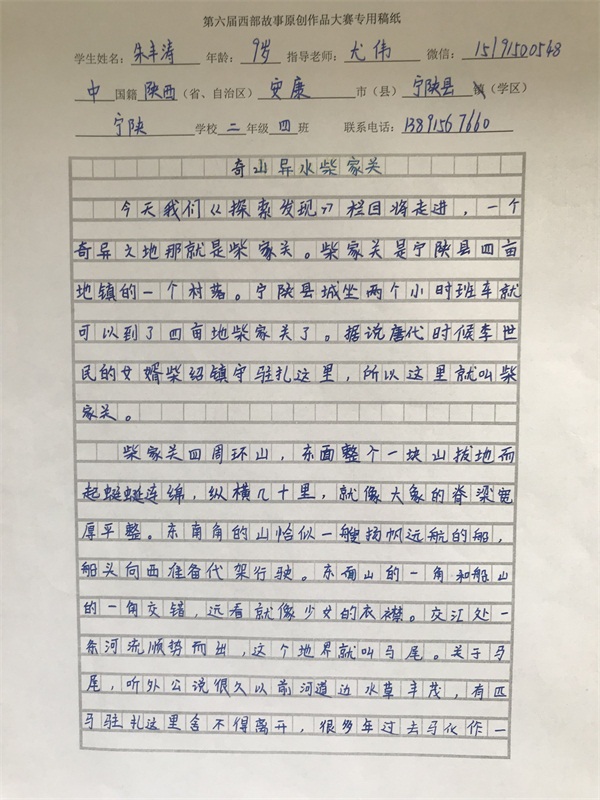 第六届西部故事原创作品大赛专用稿纸
学生姓名：朱丰涛 年龄：9岁 指导老师：尤伟 微信：15191500548
中国籍陕西（省、自治区）安康市（县）宁陕县镇（学区）
宁陕学校二年级四班 联系电话：13891567660
奇山异水柴家关
今天我们《探索发现》栏目将走进，一个
奇异文地那就是柴家关。柴家关是宁陕县四亩
地镇的一个村落。宁陕县城坐两个小时班车就
可以到了四亩地柴家关了。据说唐代时候李世
民的女婿柴绍镇守驻扎这里，所以这里就叫柴
家关。
柴家关四周环山，东面整个一块山拔地而
起蜿蜒连绵，纵横几十里，就像大象的脊梁宽
厚平整。东南角的山恰似一艘扬帆远航的船，
船头向西准备代架行驶。东面山的一角和船山
的一角交错，远看就像少女的衣襟。交江处一
条河流顺势而出，这个地界就叫马尾。关于马
尾，听外公说很久以前河道边水草丰茂，有匹
马驻扎这里舍不得离开，很多年过去马化作一